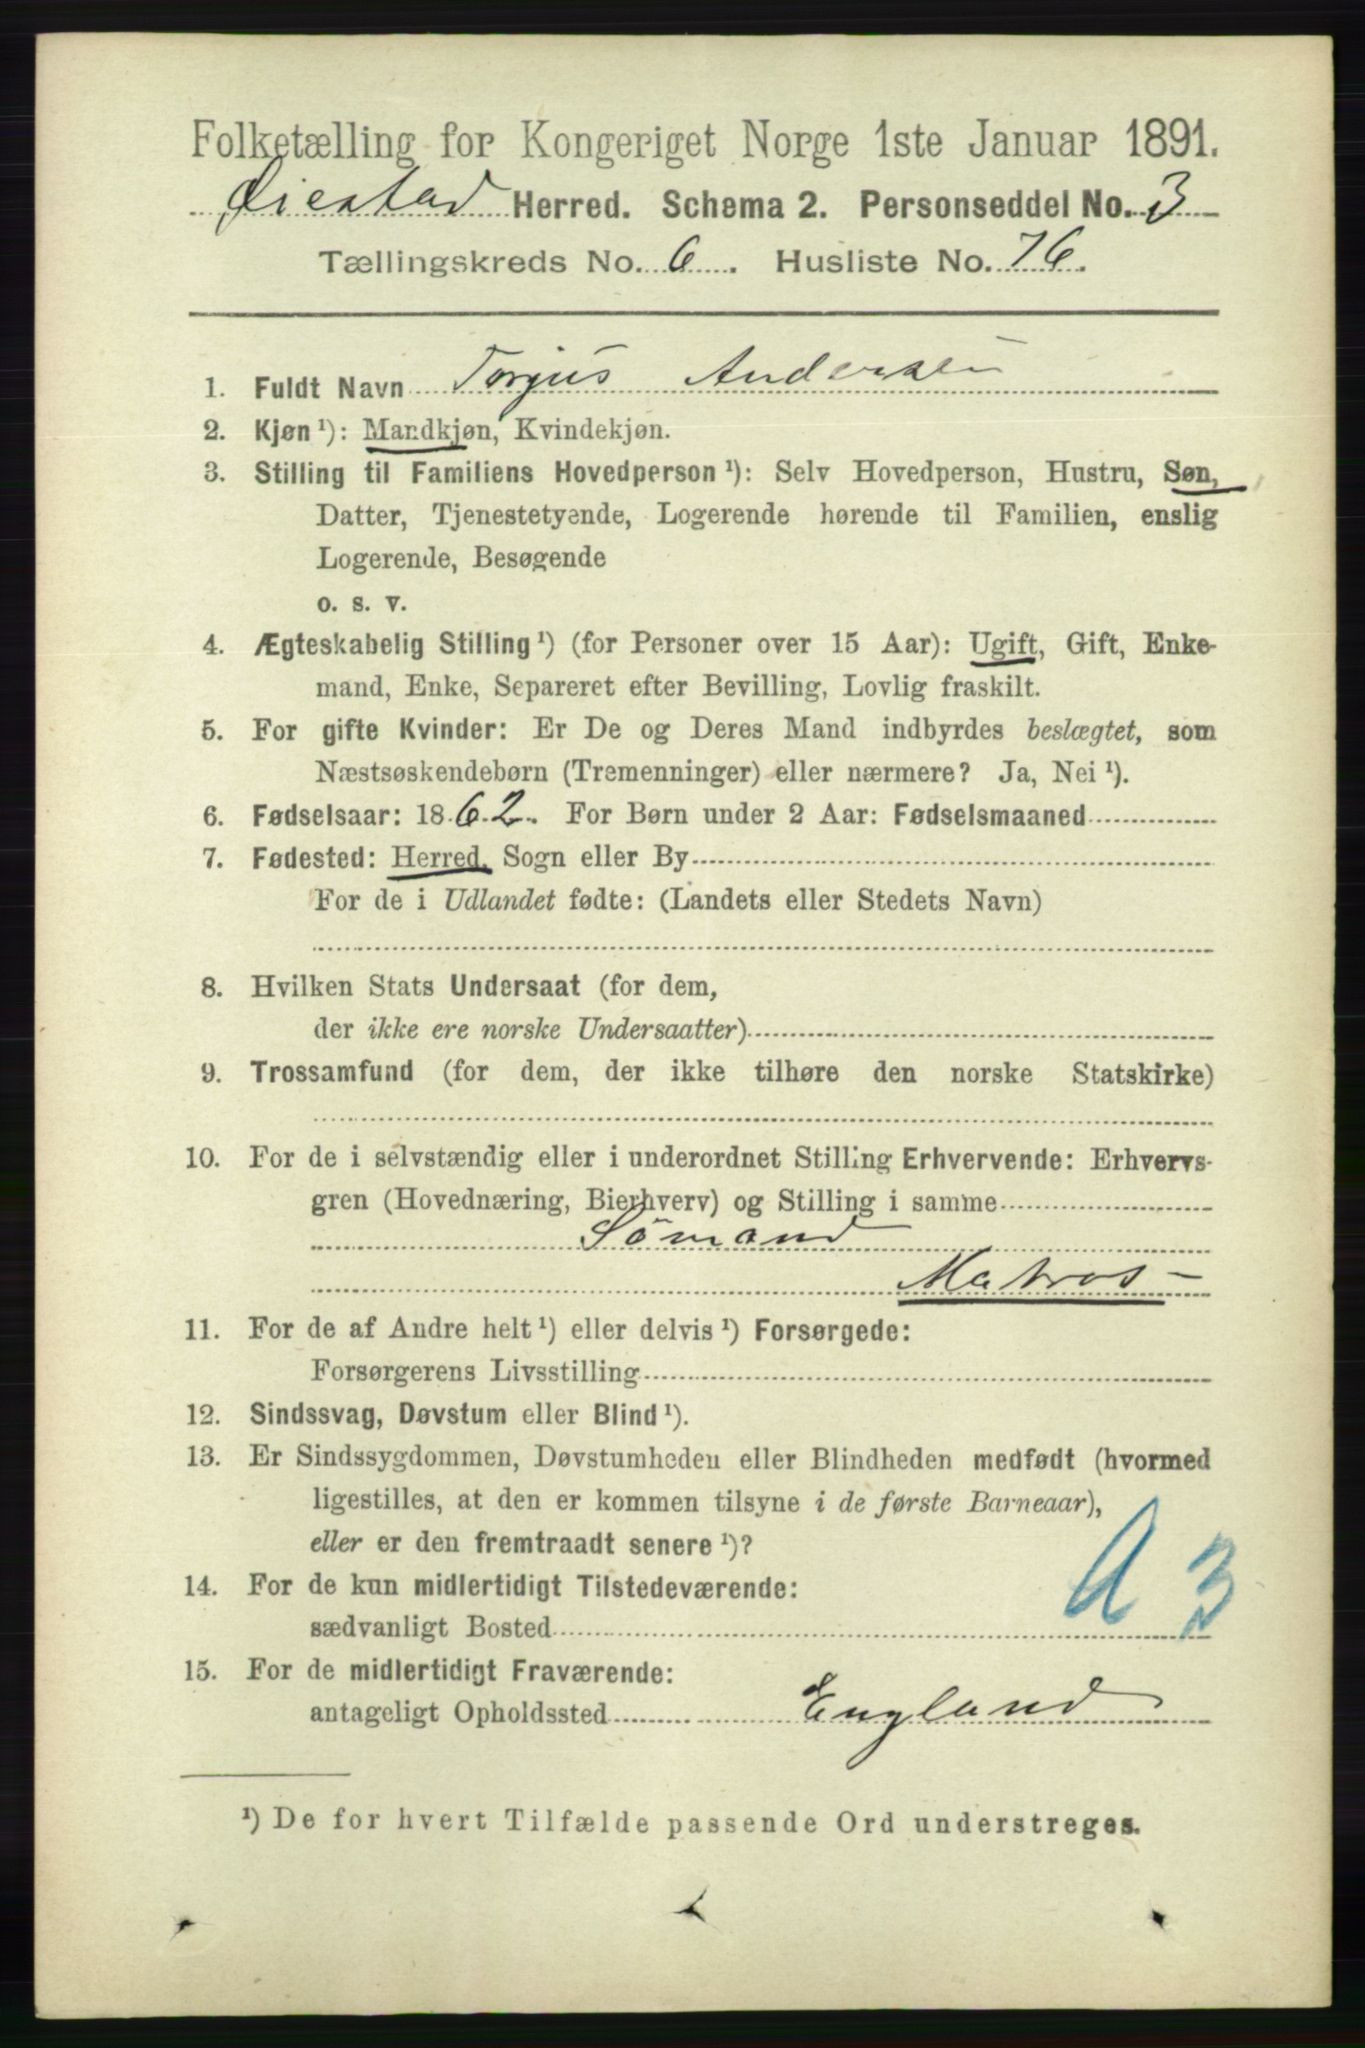 Folketælling for Kongeriget Norge 1ste Januar 1891.
Øiestad Herred. Schema 2. Personseddel No. 3
Tællingskreds No. 6. Husliste No. 76.
1. Fuldt Navn Torjus Andersen
2. Kjøn¹): Mandkjøn, Kvindekjøn.
3. Stilling til Familiens Hovedperson¹): Selv Hovedperson, Hustru, Søn,
Datter, Tjenestetyende, Logerende hørende til Familien, enslig
Logerende, Besøgende
o. s. v.
4. Ægteskabelig Stilling¹) (for Personer over 15 Aar): Ugift, Gift, Enke-
mand, Enke, Separeret efter Bevilling, Lovlig fraskilt.
5. For gifte Kvinder: Er De og Deres Mand indbyrdes beslægtet, som
Næstsøskendebørn (Tremenninger) eller nærmere? Ja, Nei¹).
6. Fødselsaar: 1862. For Børn under 2 Aar: Fødselsmaaned
7. Fødested: Herred, Sogn eller By
For de i Udlandet fødte: (Landets eller Stedets Navn)
8. Hvilken Stats Undersaat (for dem,
der ikke ere norske Undersaatter)
9. Trossamfund (for dem, der ikke tilhøre den norske Statskirke)
10. For de i selvstændig eller i underordnet Stilling Erhvervende: Erhvervs-
gren (Hovednæring, Bierhverv) og Stilling i samme
Sömand
Matros -
11. For de af Andre helt¹) eller delvis¹) Forsørgede:
Forsørgerens Livsstilling
12. Sindssvag, Døvstum eller Blind¹).
13. Er Sindssygdommen, Døvstumheden eller Blindheden medfødt (hvormed
ligestilles, at den er kommen tilsyne i de første Barneaar),
eller er den fremtraadt senere¹)?
A 3
14. For de kun midlertidigt Tilstedeværende:
sædvanligt Bosted
15. For de midlertidigt Fraværende:
antageligt Opholdssted England
¹) De for hvert Tilfælde passende Ord understreges.